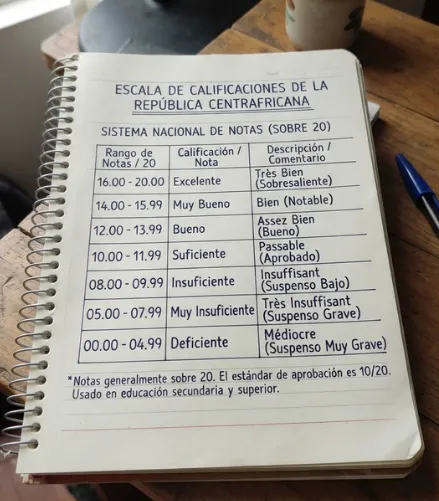 ESCALA DE CALIFICACIONES DE LA
REPÚBLICA CENTRAFRICANA
SISTEMA NACIONAL DE NOTAS (SOBRE 20)
Rango de Notas / 20 | Calificación / Nota | Descripción / Comentario
16.00 - 20.00 | Excelente | Très Bien (Sobresaliente)
14.00 - 15.99 | Muy Bueno | Bien (Notable)
12.00 - 13.99 | Bueno | Assez Bien (Bueno)
10.00 - 11.99 | Suficiente | Passable (Aprobado)
08.00 - 09.99 | Insuficiente | Insuffisant (Suspenso Bajo)
05.00 - 07.99 | Muy Insuficiente | Très Insuffisant (Suspenso Grave)
00.00 - 04.99 | Deficiente | Médiocre (Suspenso Muy Grave)
*Notas generalmente sobre 20. El estándar de aprobación es 10/20.
Usado en educación secundaria y superior.